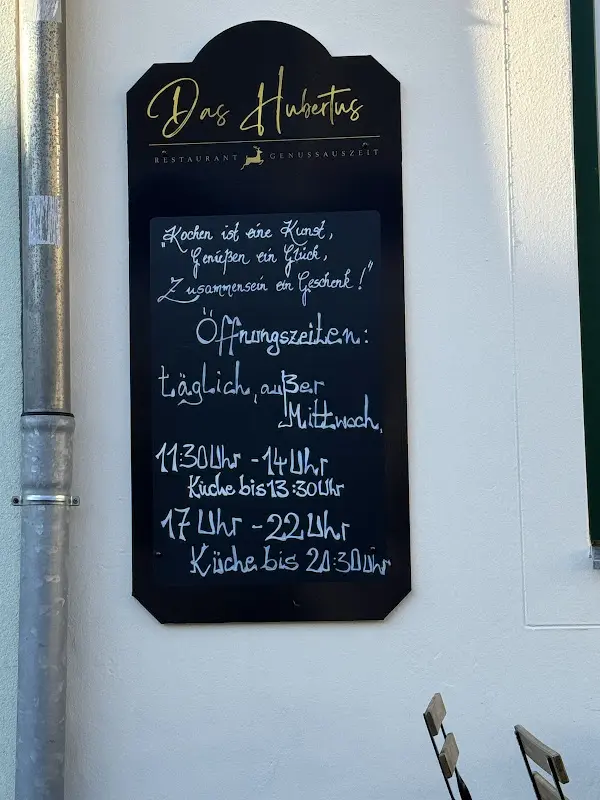 Das Hubertus
RESTAURANT GENUSSAUSZEIT
"Kochen ist eine Kunst,
Genießen ein Glück,
Zusammensein ein Geschenk!"
Öffnungszeiten:
täglich, außer
Mittwoch,
11:30 Uhr - 14 Uhr
Küche bis 13:30 Uhr
17 Uhr - 22 Uhr
Küche bis 20:30 Uhr